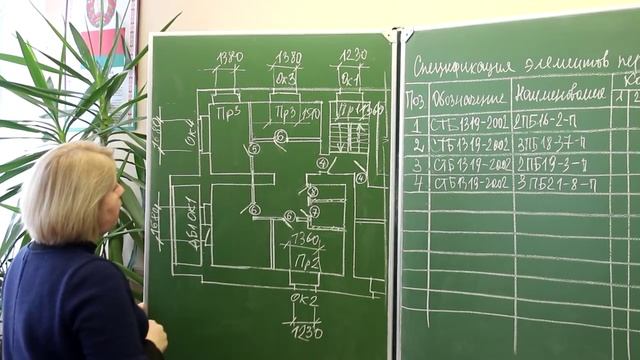 1380 1380 1230
ОК3 ОК1
Пр3 Пр3 1510 Пр1 1360
ОК4
6
5
4 4
8
5 6 7
БЛ ОК1
1360
Пр2
ОК2
1230
Спецификация элементов пер
Поз Обозначение Наименование К
1 СТБ1319-2002 2ПБ16-2-п
2 СТБ1319-2002 3ПБ18-37-п
3 СТБ1319-2002 2ПБ19-3-п
4 СТБ1319-2002 3ПБ21-8-п